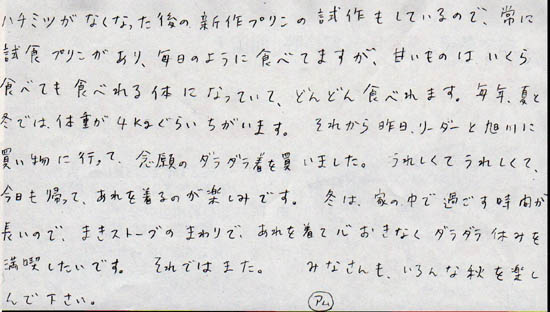 ハチミツがなくなった後の新作プリンの試作もしているので、常に
試食プリンがあり、毎日のように食べてますが、甘いものはいくら
食べても食べれる体になっていて、どんどん食べれます。毎年、夏と
冬では、体重が4kgぐらいちがいます。 それから昨日、リーダーと旭川に
買い物に行って、念願のダラダラ着を買いました。 うれしくてうれしくて、
今日も帰って、あれを着るのが楽しみです。 冬は、家の中で過ごす時間が
長いので、まきストーブのまわりで、あれを着て心おきなくダラダラ休みを
満喫したいです。 それではまた。 みなさんも、いろんな秋を楽し
んで下さい。